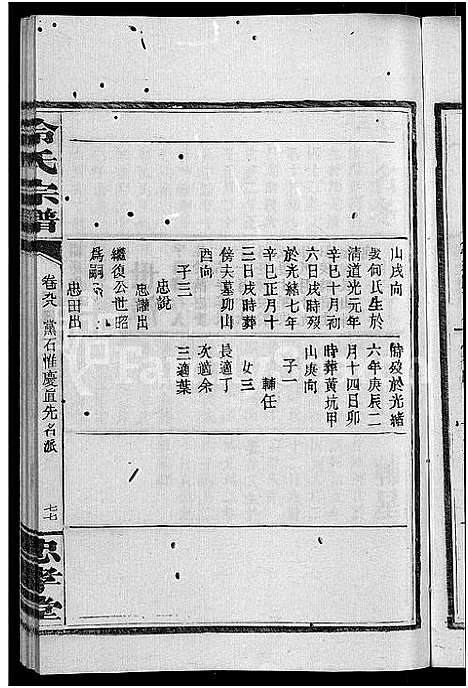 冷氏宗譜
卷廿九
黨石惟慶直先名派
七七
忠孝堂
山戌向
妻何氏生於
清道光元年
辛巳十月初
六日戌時歿
於光緒七年
辛巳正月十
三日戌時葬
傍夫墓卯山
酉向
子三
忠説
忠讙出
繼復公世昭
爲嗣
忠田出
時歿於光緒
六年庚辰二
月十四日卯
時葬黄坑甲
山庚向
子一
輔任
女三
長適丁
次適余
三適葉